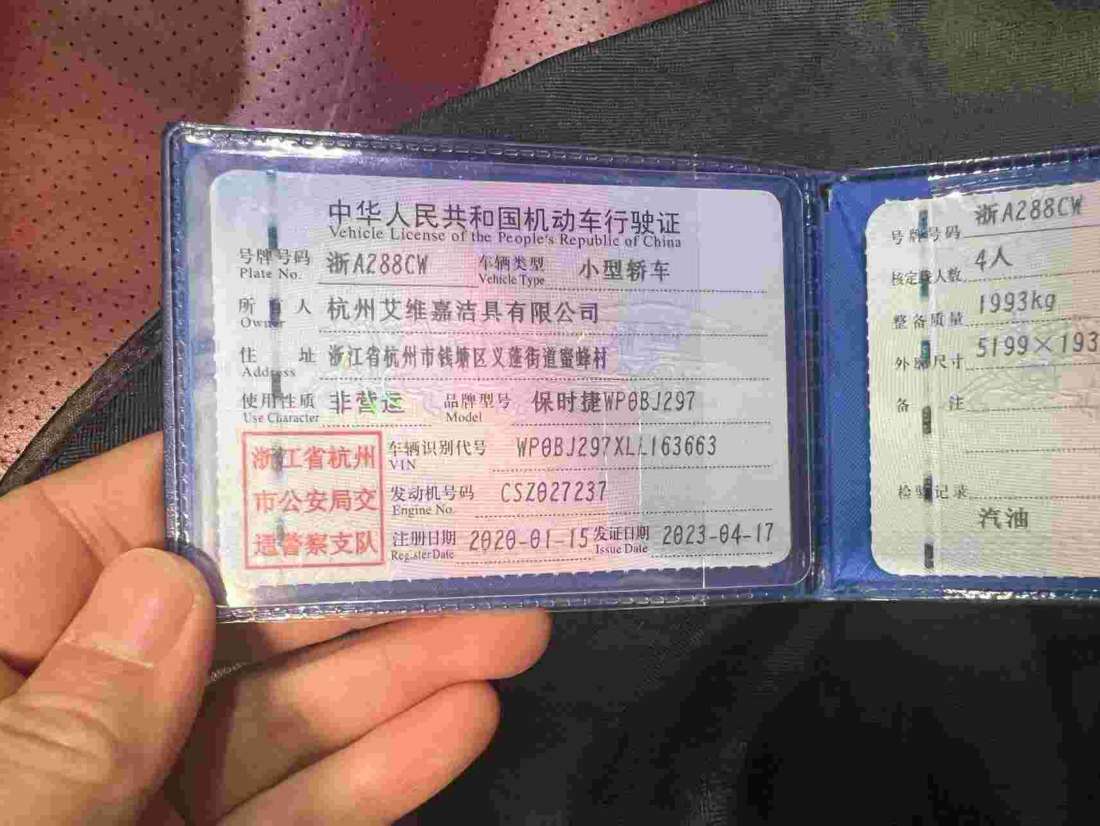 中华人民共和国机动车行驶证
Vehicle License of the People's Republic of China
号牌号码 浙A288CW 车辆类型 小型轿车
Plate No. Vehicle Type
所有人 杭州艾维嘉洁具有限公司
Owner
住址 浙江省杭州市钱塘区义蓬街道蜜蜂村
Address
使用性质 非营运 品牌型号 保时捷WP0BJ297
Use Character Model
浙江省杭州
市公安局交
通警察支队
车辆识别代号 WP0BJ297XLL163663
VIN
发动机号码 CSZ027237
Engine No.
注册日期 2020-01-15 发证日期 2023-04-17
Register Date Issue Date
号牌号码 浙A288CW
核定载人数 4人
整备质量 1993kg
外廓尺寸 5199×193
备注
检验记录
汽油